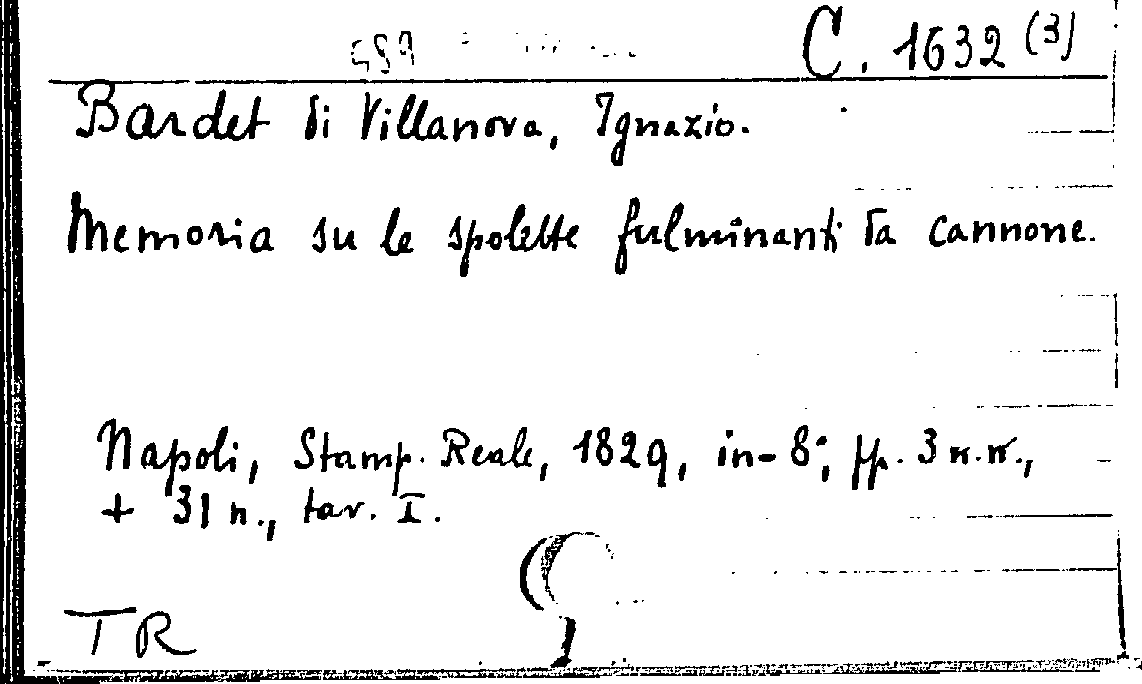 589 C. 1632 (3)
Bardet di Villanova, Ignazio.
Memoria su le spolette fulminanti da cannone.
Napoli, Stamp. Reale, 1829, in-8°, pp. 3 n.n.,
+ 31 n., tav. I.
TR